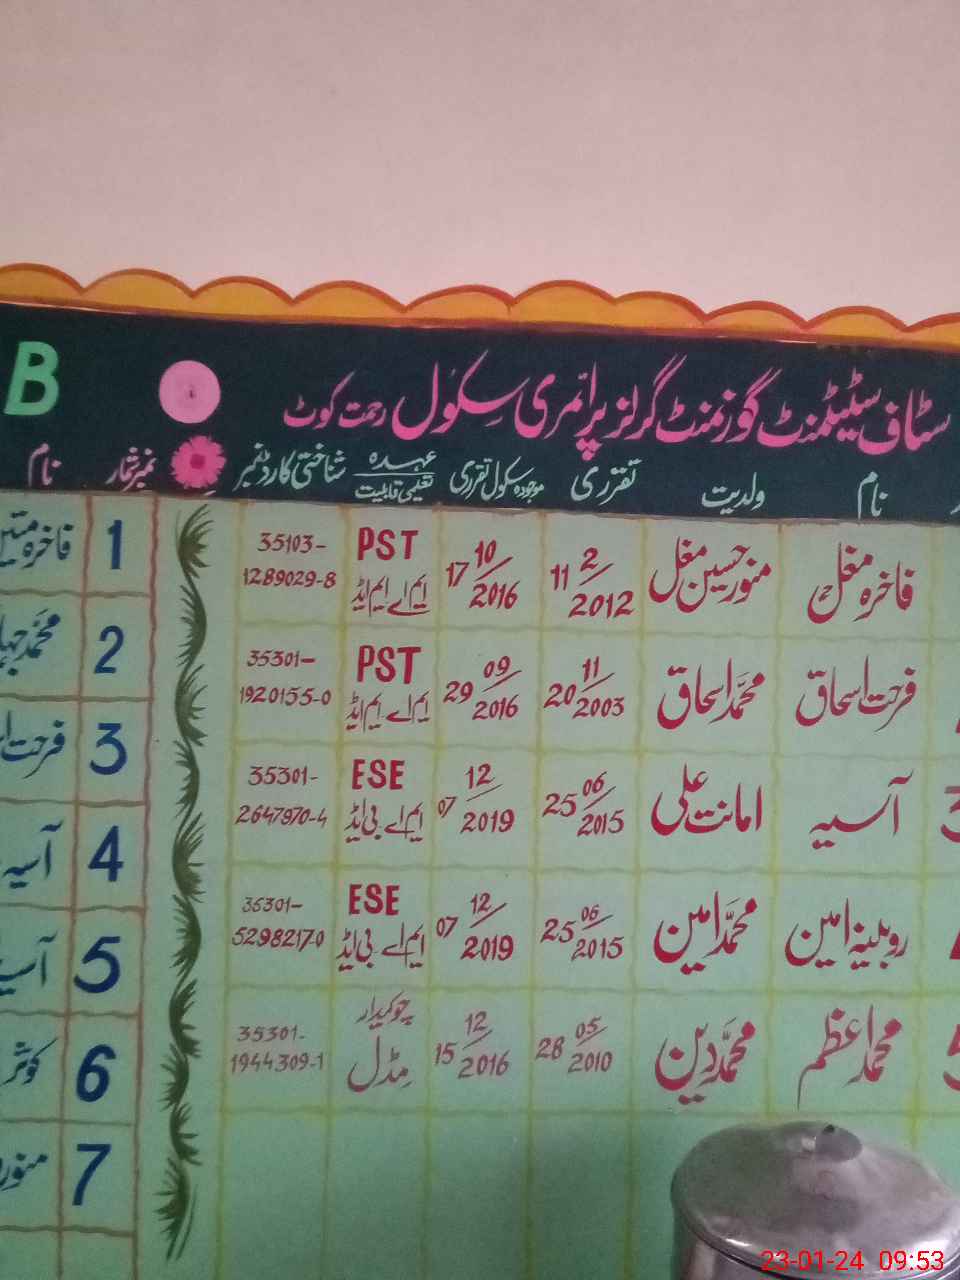 سٹاف سٹیٹمنٹ گورنمنٹ گرلز پرائمری سکول رحمت کوٹ
نام ولدیت تقرری موجودہ سکول تقرری عہدہ تعلیمی قابلیت شناختی کارڈ نمبر
فاخرہ مغل منور حسین مغل 11 2/2012 17 10/2016 PST ایم اے ایم ایڈ 35103-1289029-8
فرحت اسحاق محمد اسحاق 20 11/2003 29 09/2016 PST ایم اے ایم ایڈ 35301-1920155-0
آسیہ امانت علی 25 06/2015 07 12/2019 ESE ایم اے بی ایڈ 35301-2647970-4
روبینہ امین محمد امین 25 06/2015 07 12/2019 ESE ایم اے بی ایڈ 35301-5298217-0
محمد اعظم محمد دین 28 05/2010 15 12/2016 چوکیدار مڈل 35301-1944309-1
B
نمبر شمار نام
1 فاخرہ
2 محمد
3 فرحت
4 آسیہ
5
6 کوثر
7
23-01-24 09:53